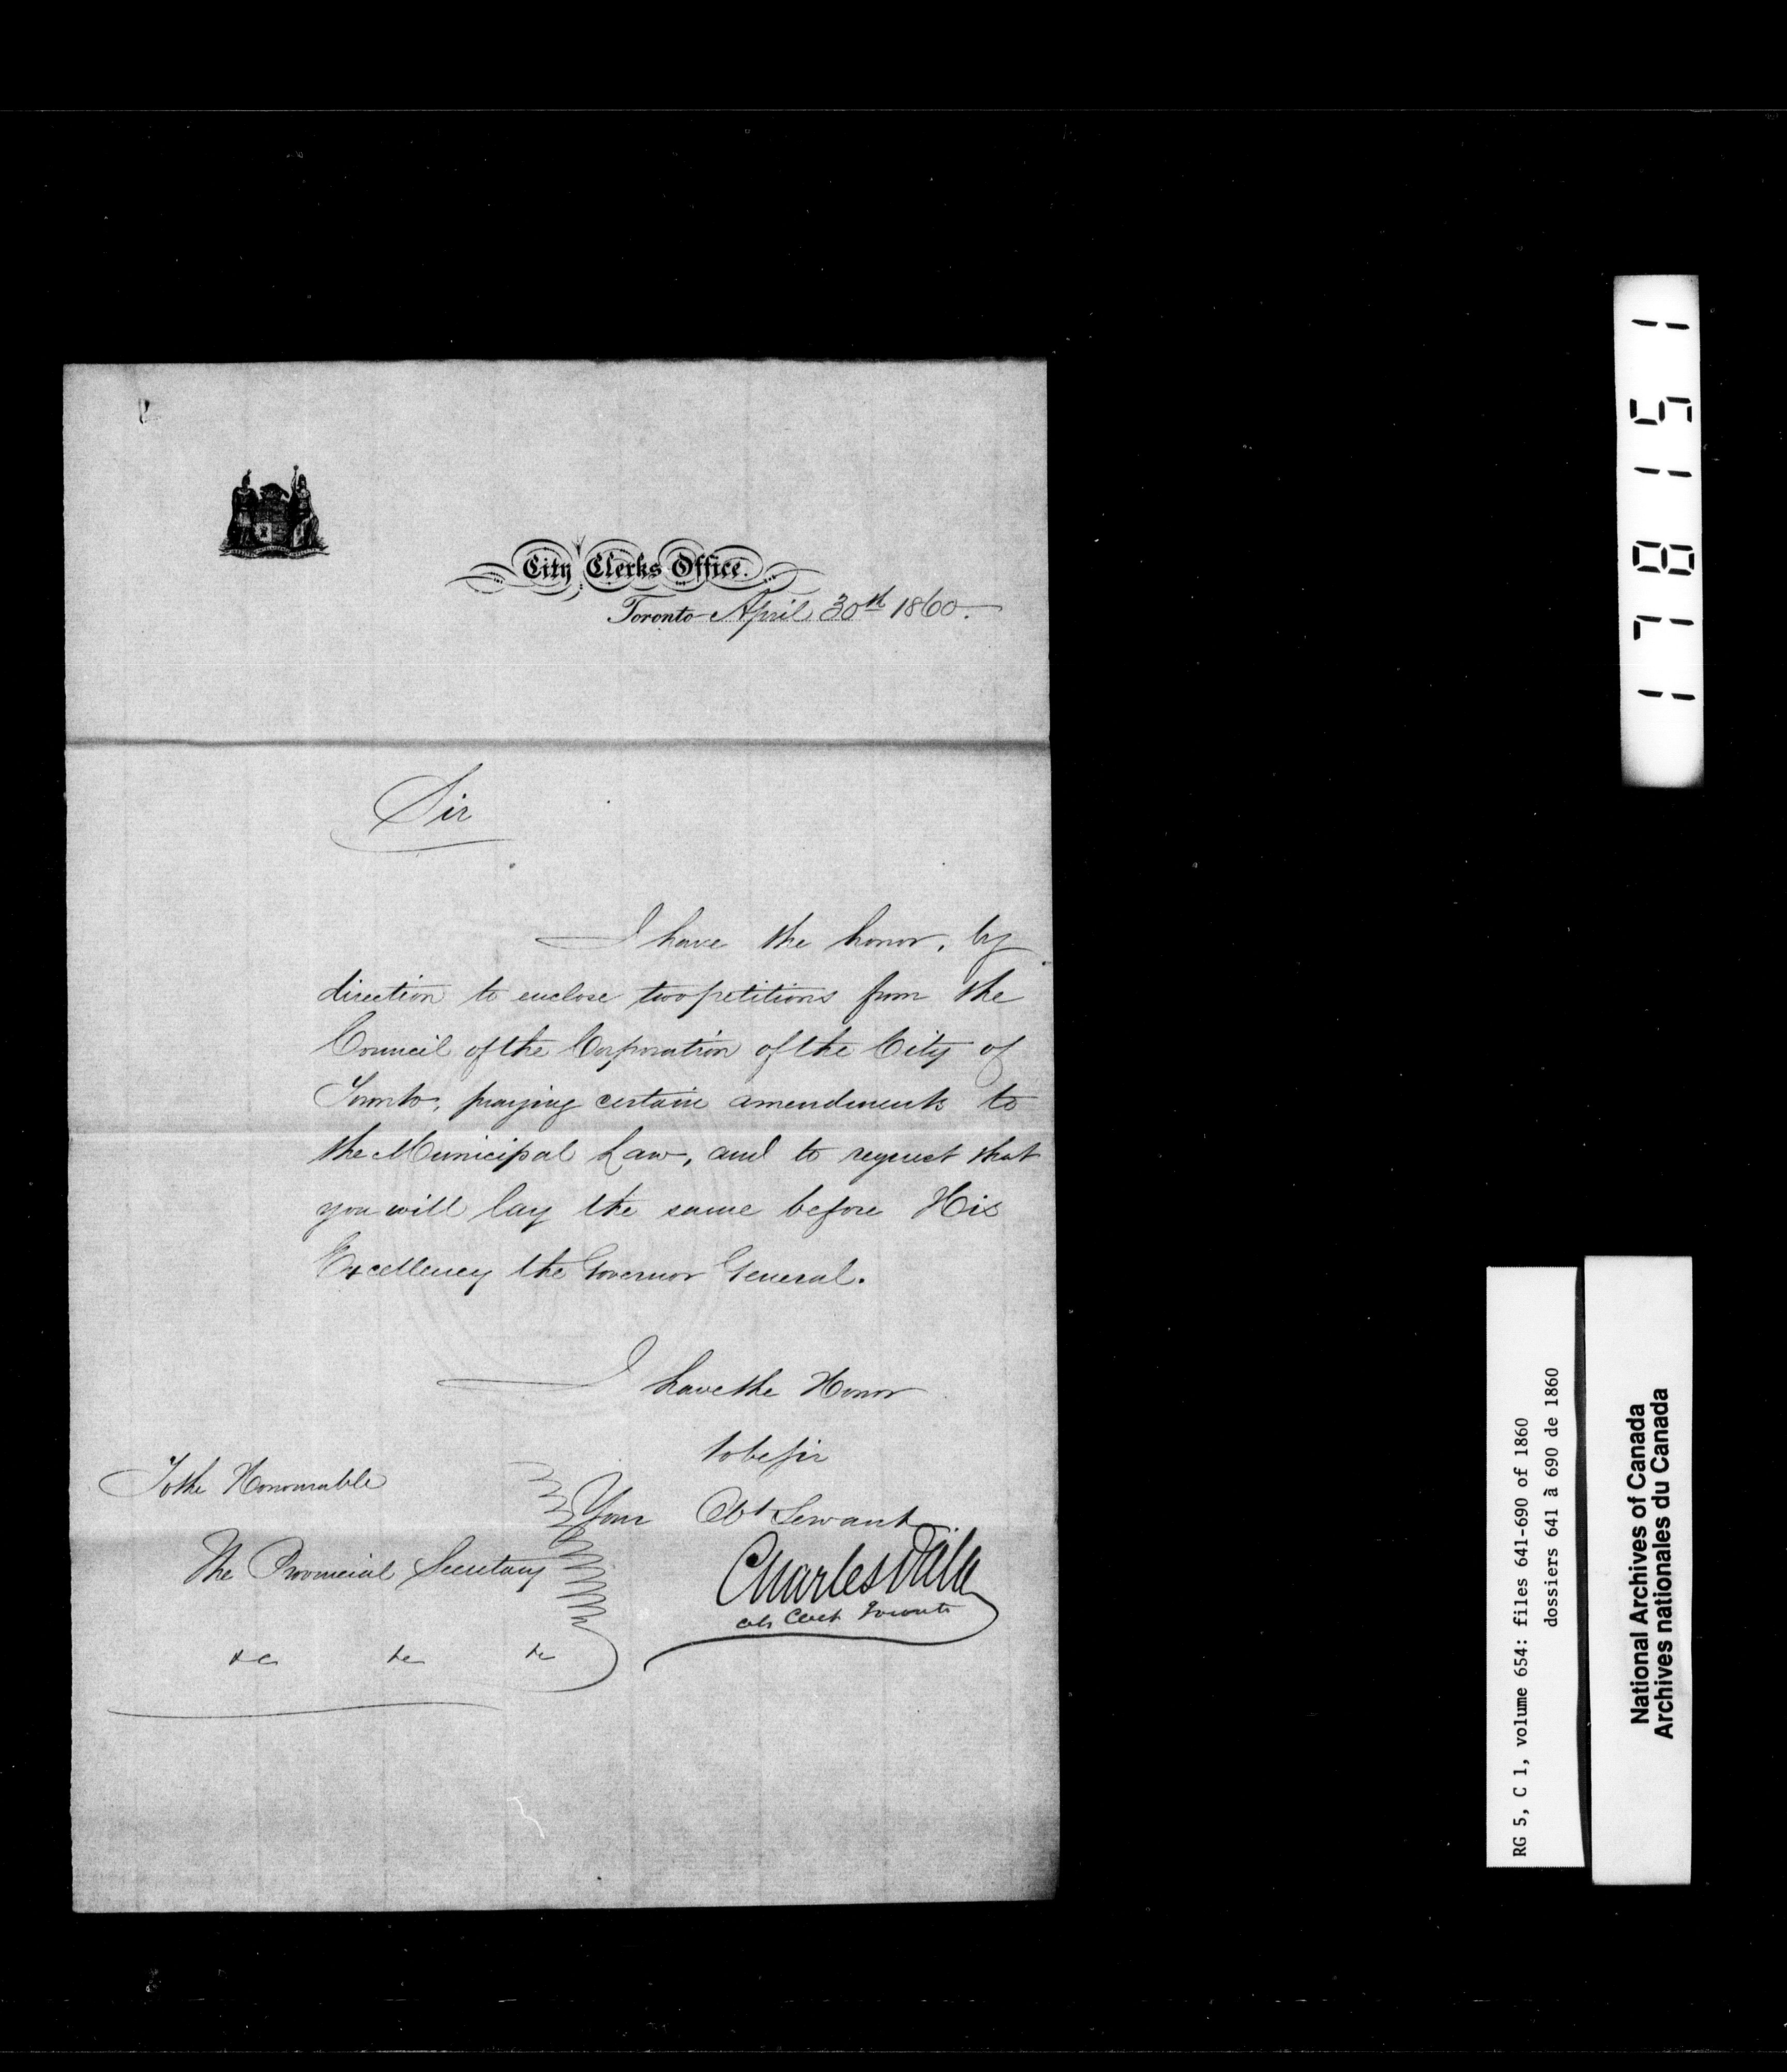 City Clerks Office.
Toronto April 30th 1860.
Sir
I have the honor, by
direction to enclose two petitions from the
Council of the Corporation of the City of
Toronto, praying certain amendments to
the Municipal Law, and to request that
you will lay the same before His
Excellency the Governor General.
I have the Honor
to be sir
Your Obt Servant
Charles Daly
Clerk Toronto
To the Honourable
The Provincial Secretary
&c &c &c
178151
RG 5, C 1, volume 654: files 641-690 of 1860
dossiers 641 à 690 de 1860
National Archives of Canada
Archives nationales du Canada